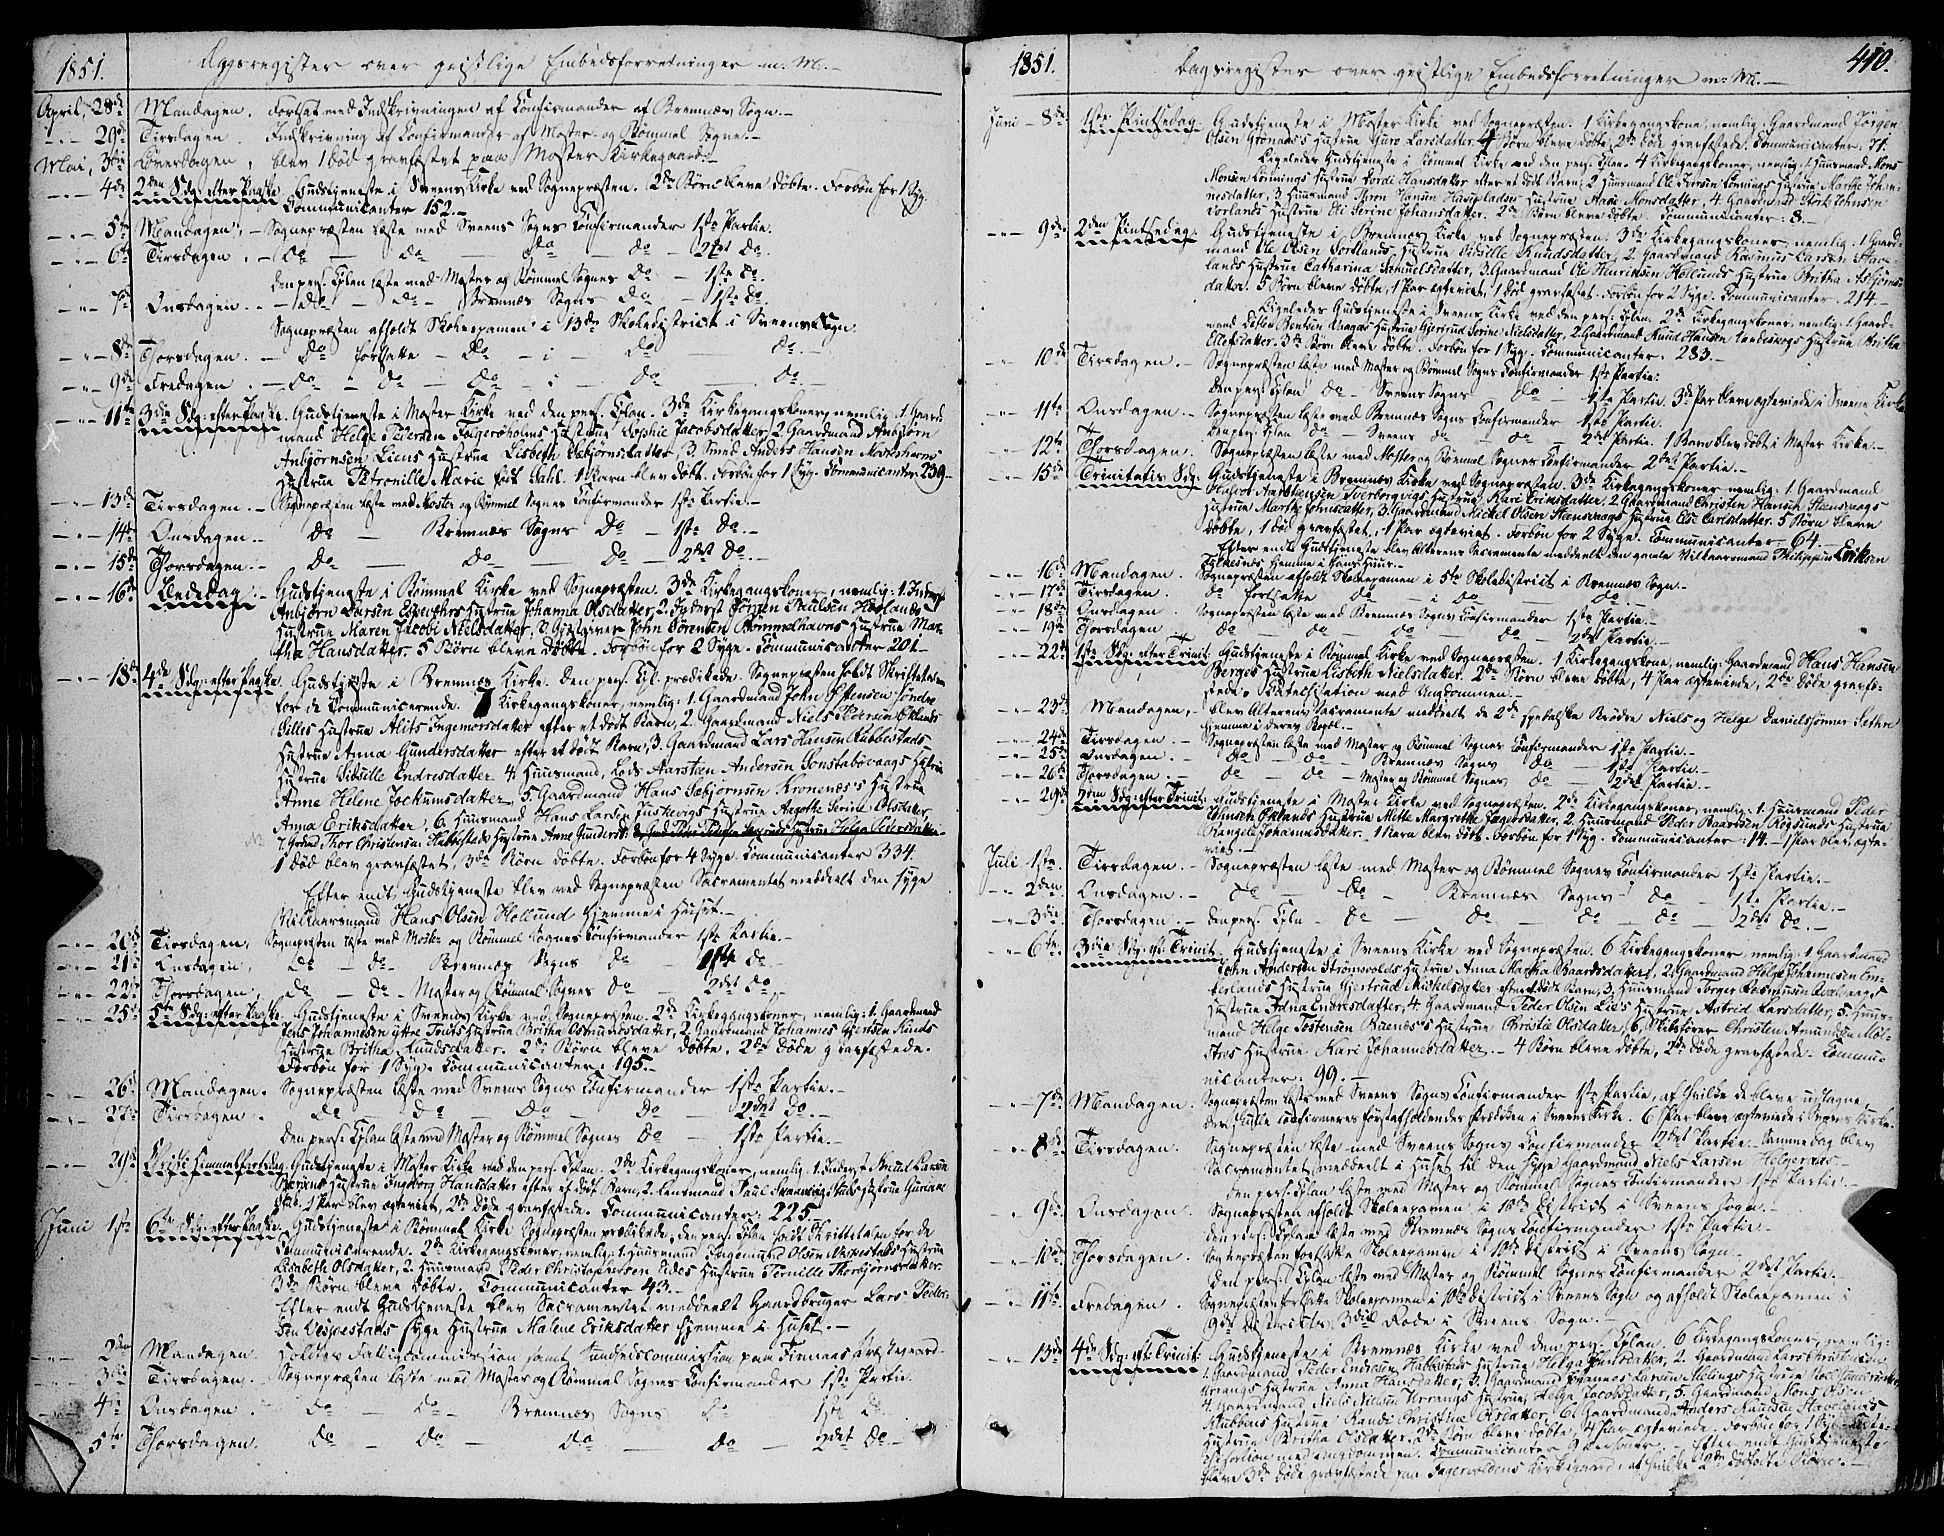 1851. Dagsregister over geistlige Embedsforretninger m. M.-
April, 28de Mandagen. Fortsat med Indskrivningen af Confirmander af Bremnæs Sogn.-
29de Tirsdagen Indskrivning af Confirmander af Moster- og Rømmel Sogne.-
Mai, 3die Løverdagen, blev 1 død gravfæstet paa Moster Kirkegaard.-
4de 2den Sdg: efter Paaske Gudstjeneste i Sveens Kirke ved Sognepræsten. 2de Børn bleve døbte. Forbøn for 1 Syg.
Communicanter 152.-
5te Mandagen, - Sognepræsten læste med Sveens Sogns Confirmander 1ste Partie.
6te Tirsdagen. - Do - do - do - do - 2det do.
den pers. Cplan læste med Moster og Rømmel Sognes do - 1ste do.
7de Onsdagen. - do - do - Bremnæs Sogns do - 1ste do.
Sognepræsten afholdt Skoleexamen i 13de Skoledistrict i Sveens Sogn
8de Thorsdagen. - do fortsatte - do - i - do do.-
9de Fredagen. - do - do - do - i - do - do.-
11te 3die Sdg: efter Paaske. Gudstjeneste i Moster Kirke ved den pers. Cplan. 3de Kirkegangskoner, nemlig: 1. Gaard-
mand Helge Pedersen Folgerøholms Hustrue Sophie Jacobsdatter, 2. Gaardmand Anbjørn
Anbjørnsen Liens Hustrue Lisbeth Asbjørnsdatter, 3. Smed Anders Hansen
Hustrue Petronille Marie født Dahl. 1 Barn blev døbt. Forbøn for 1 Syg. Communicanter 239.-
13de Tirsdagen. - Sognepræsten læste med Moster og Rømmel Sognes Confirmander 1ste Partie.-
14de Onsdagen. - do - Bremnæs Sogns do - 1ste do.-
15de Thorsdagen. - do - do - do - 2det do.-
16de Bededag. - Gudstjeneste i Rømmel Kirke ved Sognepræsten. 3de Kirkegangskoner, nemlig: 1. Inderst
Anbjørn Larsen Hustrue Johanna Olsdatter, 2. Inderst Jørgen Paulsen
Hustrue Maren Jacobi Nielsdatter, 3. Gjestgiver John Sørensen Rømmelhavns Hustrue Mar-
tha Hansdatter. 5 Børn bleve døbte. Forbøn for 2 Syge. Communicanter 201.-
18de 4de Sdg: efter Paaske. Gudstjeneste i Bremnæs Kirke. Den pers. Cpl. prædikede. Sognepræsten holdt Skriftetalen
for de Communicerende. 7 Kirkegangskoner, nemlig: 1. Gaardmand John Østensen Jørdre
Gilles Hustrue Alits Ingemorsdatter efter et dødt Barn, 2. Gaardmand Niels Pedersen Øklands
Hustrue Anna Gundersdatter efter et dødt Barn, 3. Gaardmand Lars Hansen Rubbestads
Hustrue Sibsille Endresdatter 4. Huusmand, Lods Aarsteen Andersen Sønstabøvaags Hustrue
Anne Helene Jochumsdatter, 5. Gaardmand Hans Asbjørnsen Kronenæs's Hustrue
Anna Eriksdatter, 6. Huusmand Hans Larsen Hustrue Aagothe Serine Olsdatter,
7. Grdmd Thor Christensen Habbestads Hustrue Anne Gundersd:
1 død blev gravfæstet, 3de Børn døbte. Forbøn for 4 Syge. Communicanter 334.
Efter endt Gudstjeneste blev ved Sognepræsten Sacramentet meddeelt den syge
Vilkaarsmand Hans Olsen Hollund hjemme i Huset.-
20de Tirsdagen, Sognepræsten læste med Moster og Rømmel Sognes Confirmander 1ste Partie.-
21de Onsdagen, do - do - Bremnæs Sogns do - 1ste do.-
22de Thorsdagen. do - do - Moster og Rømmel Sognes do - 2det do.-
25de 5te Sdg: efter Paaske. Gudstjeneste i Sveens Kirke ved Sognepræsten. 2de Kirkegangskoner, nemlig: 1. Gaardmand
Jens Johannesen yttre Hustrue Britha Osmundsdatter, 2. Gaardmand Johannes
Hustrue Britha Knudsdatter. 2de Børn bleve døbte. 2de døde gravfæstede.
Forbøn for 1 Syg. Communicanter 195.-
26de Mandagen. Sognepræsten læste med Sveens Sogns Confirmander 1ste Partie.-
27de Tirsdagen. do - do - do - do - 2det do.-
Den pers. Cplan læste med Moster og Rømmel Sognes do - 1ste Partie.-
29de Christi Himmelfartsdag. Gudstjeneste i Moster Kirke ved den pers. Cplan. 2de Kirkegangskoner, nemlig: 1. Inderst Knud Larsen
Hustrue Ingeborg Hansdatter efter et dødt Barn, 2. Lensmand Paul Hustrue
1 Par blev ægteviet, 2de døde gravfæstede. Communicanter: 225.
Juni 1ste 6te Sdg: efter Paaske. Gudstjeneste i Rømmel Kirke. Sognepræsten prædikede, den pers. Cplan holdt Skriftetalen for de
Communicerende. 2de Kirkegangskoner, nemlig: 1. Huusmand Ingemund Olsen Hustrue
Lisabeth Olsdatter, 2. Huusmand Peder Christophersen Eides Hustrue Pernille Thorbjørnsdatter.
3de Børn bleve døbte. Communicanter 43.-
Efter endt Gudstjeneste blev Sacramentet meddeelt Gaardbruger Lars Peder-
sen Vespestads syge Hustrue Malene Eriksdatter hjemme i Huset.-
2den Mandagen. Holdtes Fattigcommission samt Sundhedscommission paa Finnaas Præstegaard.
3die Tirsdagen. Sognepræsten læste med Moster og Rømmel Sognes Confirmander 1ste Partie.
4de Onsdagen. do - do - Bremnæs Sogns do 1ste do.
5te Thorsdagen. do - do - do - do - 2det do.-
1851. Dagsregister over geistlige Embedsforretninger m. M.- 410.
Juni 8de 1ste Pintsedag. Gudstjeneste i Moster Kirke ved Sognepræsten. 1 Kirkegangskone, nemlig: Gaardmand Jørgen
Olsen Grønnaas's Hustrue Guro Larsdatter. 4 Børn bleve døbte, 2de døde gravfæstede. Communicanter: 71.
Ligeledes Gudstjeneste i Rømmel Kirke ved den pers. Cplan. 4 Kirkegangskoner, nemlig: 1. Huusmand Mons
Monsen Lønnings Hustrue Hansdatter efter et dødt Barn, 2. Huusmand Ole Iversen Lønnings Hustrue Marthe Johan-
nesdatter, 3. Huusmand Hansen Hustrue Monsdatter, 4. Gaardmand Størk Johnsen
Hustrue Eli Serine Johansdatter. 2de Børn bleve døbte. Communicanter: 8.-
9de 2den Pintsedag. Gudstjeneste i Bremnæs Kirke ved Sognepræsten. 3de Kirkegangskoner, nemlig: 1. Gaard-
mand Ole Olsen Sortlands Hustrue Sidsille Knudsdatter, 2. Gaardmand Rasmus Larsen Hav-
lands Hustrue Catharina Samuelsdatter, 3. Gaardmand Ole Henriksen Hollunds Hustrue Britha Asbjørns-
datter. 5 Børn bleve døbte, 1 Par ægteviet, 1 død gravfæstet. Forbøn for 2 Syge. Communicanter: 214.-
Ligeledes Gudstjeneste i Sveens Kirke ved den pers. Cplan. 2de Kirkegangskoner, nemlig: 1. Gaard-
mand Bentsen Hustrue Gjertrud Serine Nielsdatter, 2. Gaardmand Knud Hansen Hustrue Britha
Ellefsdatter. 3de Børn bleve døbte. Forbøn for 1 Syg. Communicanter: 283.-
10de Tirsdagen - Sognepræsten læste med Moster og Rømmel Sogns Confirmander 1ste Partie:
Den pers. Cplan do - Sveens Sogns do - 1ste Partie. 3de Par bleve ægteviede i Sveens Kirke
11te Onsdagen. - Sognepræsten læste med Bremnæs Sogns Confirmander 1ste Partie.
Den pers. Cplan do - Sveens do - do - 2det Partie. 1 Barn blev døbt i Moster Kirke.-
12te Thorsdagen. Sognepræsten læste med Moster og Rømmel Sognes Confirmander 2det Partie.-
15de Trinitatis Sdg. Gudstjeneste i Bremnæs Kirke ved Sognepræsten. 3de Kirkegangskoner nemlig: 1. Gaardmand
Aarstensen Hustrue Kari Eriksdatter, 2. Gaardmand Christen Hansen Steensvaags
Hustrue Marthe Johnsdatter, 3. Gaardmand Mickel Olsen Steensvaags Hustrue Else Carlsdatter. 5 Børn bleve
døbte, 1 død gravfæstet, 1 Par ægteviet. Forbøn for 2 Syge. Communicanter 64.-
Efter endt Gudstjeneste blev Alterens Sacramente meddeelt den gamle Vilkaarsmand Philippus Eriksen
hjemme i hans Huus.-
16de Mandagen. Sognepræsten afholdt Skoleexamen i 5te Skoledistrict i Bremnæs Sogn.-
17de Tirsdagen. do fortsatte do - i do - do.-
18de Onsdagen. Sognepræsten læste med Bremnæs Sogns Confirmander 1ste Partie.-
19de Thorsdagen do - do - do - do - 2det Partie.-
22de 1ste Sdg: efter Trinit. Gudstjeneste i Rømmel Kirke ved Sognepræsten. 1 Kirkegangskone, nemlig: Gaardmand Hans Hansen
Berges Hustrue Lisbeth Nielsdatter. 2de Børn bleve døbte, 4 Par ægteviede, 2de døde gravfæ-
stede. Katechisation med Ungdommen.-
23de Mandagen, - blev Alterens Sacramente meddeelt de 2de spedalske Brødre Niels og Helge Danielssønner
hjemme i deres Bopæl.-
24de Tirsdagen. - Sognepræsten læste med Moster og Rømmel Sognes Confirmander 1ste Partie.-
25de Onsdagen. - do - do - Bremnæs Sogns do - 1ste Partie.-
26de Thorsdagen. - do - do - Moster og Rømmel Sognes do - 2det Partie.-
29de 2den Sdg: efter Trinit. Gudstjeneste i Moster Kirke ved Sognepræsten. 2de Kirkegangskoner, nemlig: 1. Huusmand Peder
Johnsen Øklands Hustrue Mette Margrethe 2. Huusmand Peder Baardsen Hustrue
Rangele Johannesdatter. 1 Barn blev døbt. Forbøn for 1 Syg. Communicanter: 14.- 1 Par blev ægte-
viet.-
Juli 1ste Tirsdagen. - Sognepræsten læste med Moster og Rømmel Sognes Confirmander 1ste Partie.-
2den Onsdagen. - do - do Bremnæs Sogns do - 1ste Partie.-
3die Thorsdagen. - den pers. Cpln - do - do - do - do - 2det do.-
6te 3die Sdg: eft: Trinit. Gudstjeneste i Sveens Kirke ved Sognepræsten. 6 Kirkegangskoner, nemlig: 1. Gaardmand
John Andersen Strømsvolds Hustrue Anna Martha Baardsdatter, 2. Gaardmand Helge Johannesen Em-
terlands Hustrue Gjertrud Mickelsdatter efter et dødt Barn, 3. Huusmand Torger Rasmussen
Hustrue Edna Endresdatter, 4. Gaardmand Peder Olsen Lie's Hustrue Astrid Larsdatter, 5. Huus-
mand Helge Tostensen Buenæs's Hustrue Christie Olsdatter, 6. Skibsfører Christen Amundsen Møl-
stres Hustrue Kari Johannesdatter.- 4 Børn bleve døbte, 2de døde gravfæstede. Commu-
nicanter: 99.-
7de Mandagen. Sognepræsten læste med Sveens Sogns Confirmander 1ste Partie, af hvilke de bleve udtagne,
der skulle confirmeres førstafholdendes Prædiken i Sveens Kirke. 6 Par bleve ægteviede i Sveens Kirke.
8de Tirsdagen. Sognepræsten læste med Sveens Sogns Confirmander 2det Partie. Samme dag blev
Sacramentet meddeelt i Huset til den syge Gaardmand Niels Larsen Helgenæs.-
Den pers. Cplan læste med Moster og Rømmel Sognes Confirmander 1ste Partie.-
9de Onsdagen. Sognepræsten afholdt Skoleexamen i 10de District i Sveens Sogn.-
den pers. Cplan læste med Bremnæs Sogns Confirmander 1ste Partie.-
10de Thorsdagen. Sognepræsten fortsatte Skoleexamen i 10de District i Sveens Sogn.-
Den pers. Cplan læste med Moster og Rømmel Sognes Confirmander 2det Partie.-
11te Fredagen. Sognepræsten fortsatte Skoleexamen i 10de District i Sveens Sogn og afholdt Skoleexamen i
9de Districts 3die Rode i Sveens Sogn.-
13de 4de Sdg: eft: Trinit. Gudstjeneste i Bremnæs Kirke ved den pers. Cplan. 6 Kirkegangskoner, nemlig:
1. Gaardmand Peder Endresen Habbestads Hustrue Helga 2. Gaardmand Lars Christensen
Urrangs Hustrue Anna Hansdatter, 3. Gaardmand Johannes Larsen Melings Hustrue
4. Gaardmand Niels Nielsen Urrangs Hustrue Helga Jacobsdatter, 5. Gaardmand Mons Olsen
Klubbens Hustrue Randi Christine Olsdatter, 6. Gaardmand Anders Knudsen
Hustrue Britha Olsdatter. 2de Børn bleve døbte, 4 Par ægteviede. Forbøn for 1 Syg.
med Ungdommen. Communicanter 9 Personer.- Efter endt Gudstjeneste
bleve 3de døde gravfæstede paa Fagervoldens Kirkegaard, af hvilke 2de dødfødte Børn.-